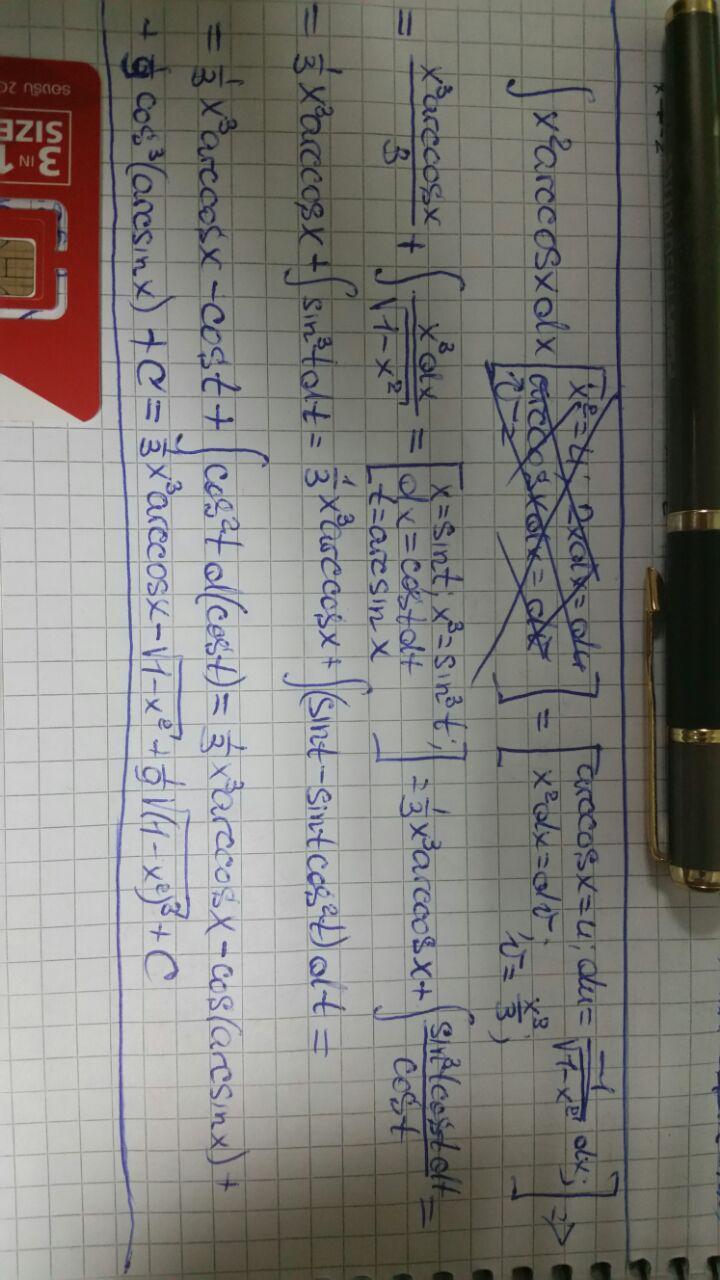 ∫ x² arccosx dx [x² = u; 2xdx = du arccosxdx = dv v = ] = [arccosx = u; du = -1/√(1-x²) dx; x²dx = dv; v = x³/3;] ⇒
= x³arccosx/3 + ∫ x³dx/√(1-x²) = [x = sint; x³ = sin³t; dx = costdt t = arcsinx] = 1/3 x³arccosx + ∫ sin³tcostdt/cost =
= 1/3 x³arccosx + ∫ sin³tdt = 1/3 x³arccosx + ∫(sint - sintcos²t)dt =
= 1/3 x³arccosx - cost + ∫ cos²t d(cost) = 1/3 x³arccosx - cos(arcsinx) +
+ 1/9 cos³(arcsinx) + C = 1/3 x³arccosx - √(1-x²) + 1/9 √(1-x²)³ + C
3 IN 1
SIZE